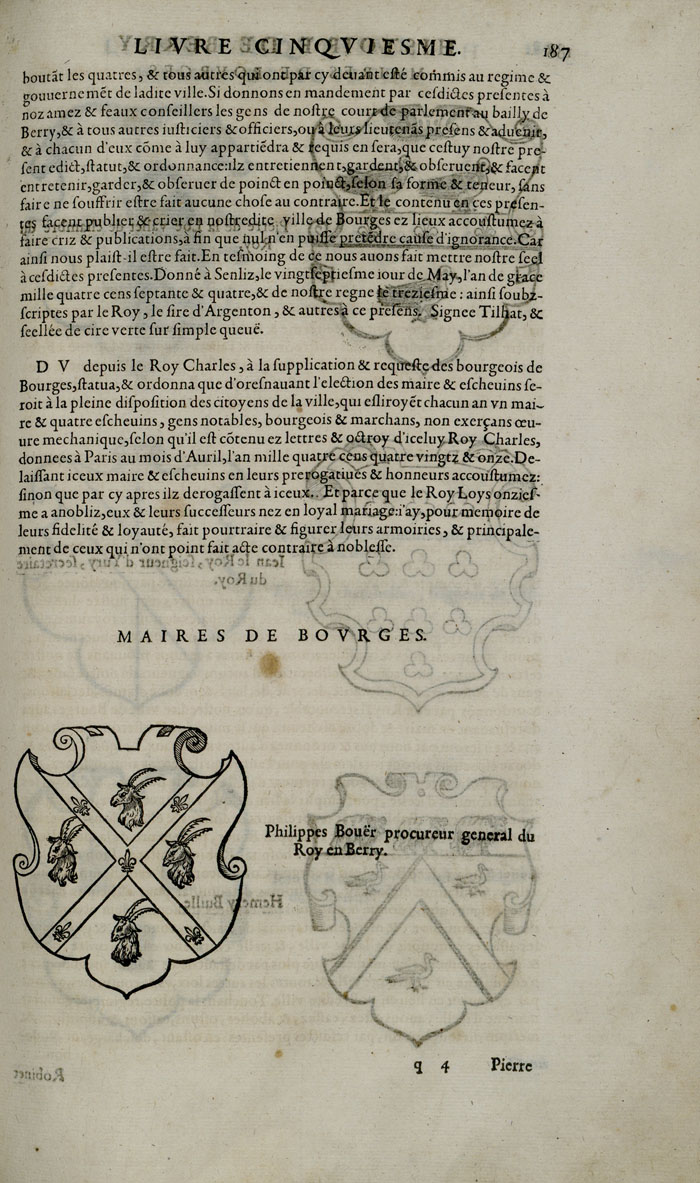 LIVRE CINQVIESME. 187
boutāt les quatres, & tous autres qui ont par cy deuant esté commis au regime &
gouuernemēt de ladite ville. Si donnons en mandement par cesdictes presentes à
noz amez & feaux conseillers les gens de nostre court de parlement au bailly de
Berry, & à tous autres iusticiers & officiers, ou à leurs lieutenās presens & aduenir,
& à chacun d'eux cōme à luy appartiēdra & requis en sera, que cestuy nostre pre-
sent edict, statut, & ordonnance: ilz entretiennent, gardent, & obseruent, & facent
entretenir, garder, & obseruer de poinct en poinct, selon sa forme & teneur, sans
faire ne souffrir estre fait aucune chose au contraire. Et le contenu en ces presen-
tes facent publier & crier en nostredite ville de Bourges ez lieux accoustumez à
faire criz & publications, à fin que nul n'en puisse pretēdre cause d'ignorance. Car
ainsi nous plaist-il estre fait. En tesmoing de ce nous auons fait mettre nostre seel
à cesdictes presentes. Donné à Senliz, le vingtseptiesme iour de May, l'an de grace
mille quatre cens septante & quatre, & de nostre regne le treziesme: ainsi soubz-
scriptes par le Roy, le sire d'Argenton, & autres à ce presens. Signee Tilhat, &
seellée de cire verte sur simple queuë.
DV depuis le Roy Charles, à la supplication & requeste des bourgeois de
Bourges, statua, & ordonna que d'oresnauant l'election des maire & escheuins se-
roit à la pleine disposition des citoyens de la ville, qui esliroyēt chacun an vn mai-
re & quatre escheuins, gens notables, bourgeois & marchans, non exerçans œu-
ure mechanique, selon qu'il est cōtenu ez lettres & octroy d'iceluy Roy Charles,
donnees à Paris au mois d'Auril, l'an mille quatre cens quatre vingtz & onze. De-
laissant iceux maire & escheuins en leurs prerogatiues & honneurs accoustumez:
sinon que par cy apres ilz derogassent à iceux. Et parce que le Roy Loys onzies-
me a anobliz, eux & leurs successeurs nez en loyal mariage: i'ay, pour memoire de
leurs fidelité & loyauté, fait pourtraire & figurer leurs armoiries, & principale-
ment de ceux qui n'ont point fait acte contraire à noblesse.
MAIRES DE BOVRGES.
Philippes Bouër procureur general du
Roy en Berry.
q 4 Pierre